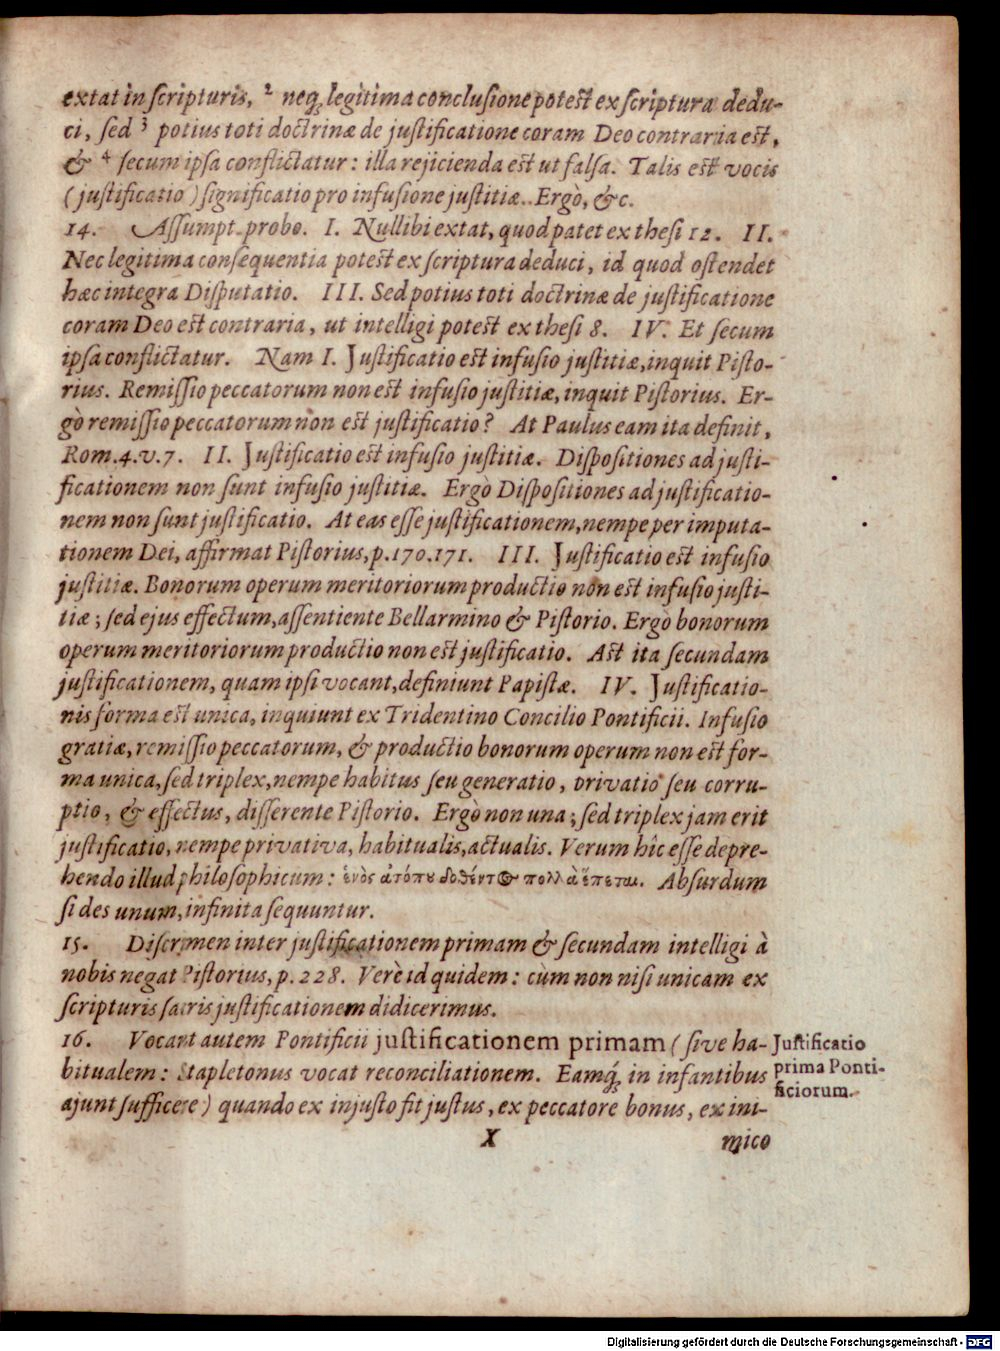 extat in scripturis, ² neq; legitima conclusione potest ex scriptura dedu-
ci, sed ³ potius toti doctrinæ de justificatione coram Deo contraria est,
& ⁴ secum ipsa conflictatur: illa rejicienda est ut falsa. Talis est vocis
(justificatio) significatio pro infusione justitiæ.. Ergò, &c.
14. Assumpt. probo. I. Nullibi extat, quod patet ex thesi 12. II.
Nec legitima consequentia potest ex scriptura deduci, id quod ostendet
hæc integra Disputatio. III. Sed potius toti doctrinæ de justificatione
coram Deo est contraria, ut intelligi potest ex thesi 8. IV. Et secum
ipsa conflictatur. Nam I. Justificatio est infusio justitiæ, inquit Pisto-
rius. Remissio peccatorum non est infusio justitiæ, inquit Pistorius. Er-
gò remissio peccatorum non est justificatio? At Paulus eam ita definit,
Rom.4.v.7. II. Justificatio est infusio justitiæ. Dispositiones ad justi-
ficationem non sunt infusio justitiæ. Ergò Dispositiones ad justificatio-
nem non sunt justificatio. At eas esse justificationem, nempe per imputa-
tionem Dei, affirmat Pistorius, p.170.171. III. Justificatio est infusio
justitiæ. Bonorum operum meritoriorum productio non est infusio justi-
tiæ; sed ejus effectum, assentiente Bellarmino & Pistorio. Ergò bonorum
operum meritoriorum productio non est justificatio. Ast ita secundam
justificationem, quam ipsi vocant, definiunt Papistæ. IV. Justificatio-
nis forma est unica, inquiunt ex Tridentino Concilio Pontificii. Infusio
gratiæ, remissio peccatorum, & productio bonorum operum non est for-
ma unica, sed triplex, nempe habitus seu generatio, privatio seu corru-
ptio, & effectus, disserente Pistorio. Ergò non una; sed triplex jam erit
justificatio, nempe privativa, habitualis, actualis. Verum hîc esse depre-
hendo illud philosophicum: ἑνὸς ἀτόπου δοθέντος πολλὰ ἕπεται. Absurdum
si des unum, infinita sequuntur.
15. Discrimen inter justificationem primam & secundam intelligi à
nobis negat Pistorius, p.228. Verè id quidem: cùm non nisi unicam ex
scripturis sacris justificationem didicerimus.
16. Vocant autem Pontificii justificationem primam (sive ha-
bitualem: Stapletonus vocat reconciliationem. Eamq; in infantibus
ajunt sufficere) quando ex injusto fit justus, ex peccatore bonus, ex ini-
Justificatio
prima Ponti-
ficiorum.
X mico
Digitalisierung gefördert durch die Deutsche Forschungsgemeinschaft - DFG